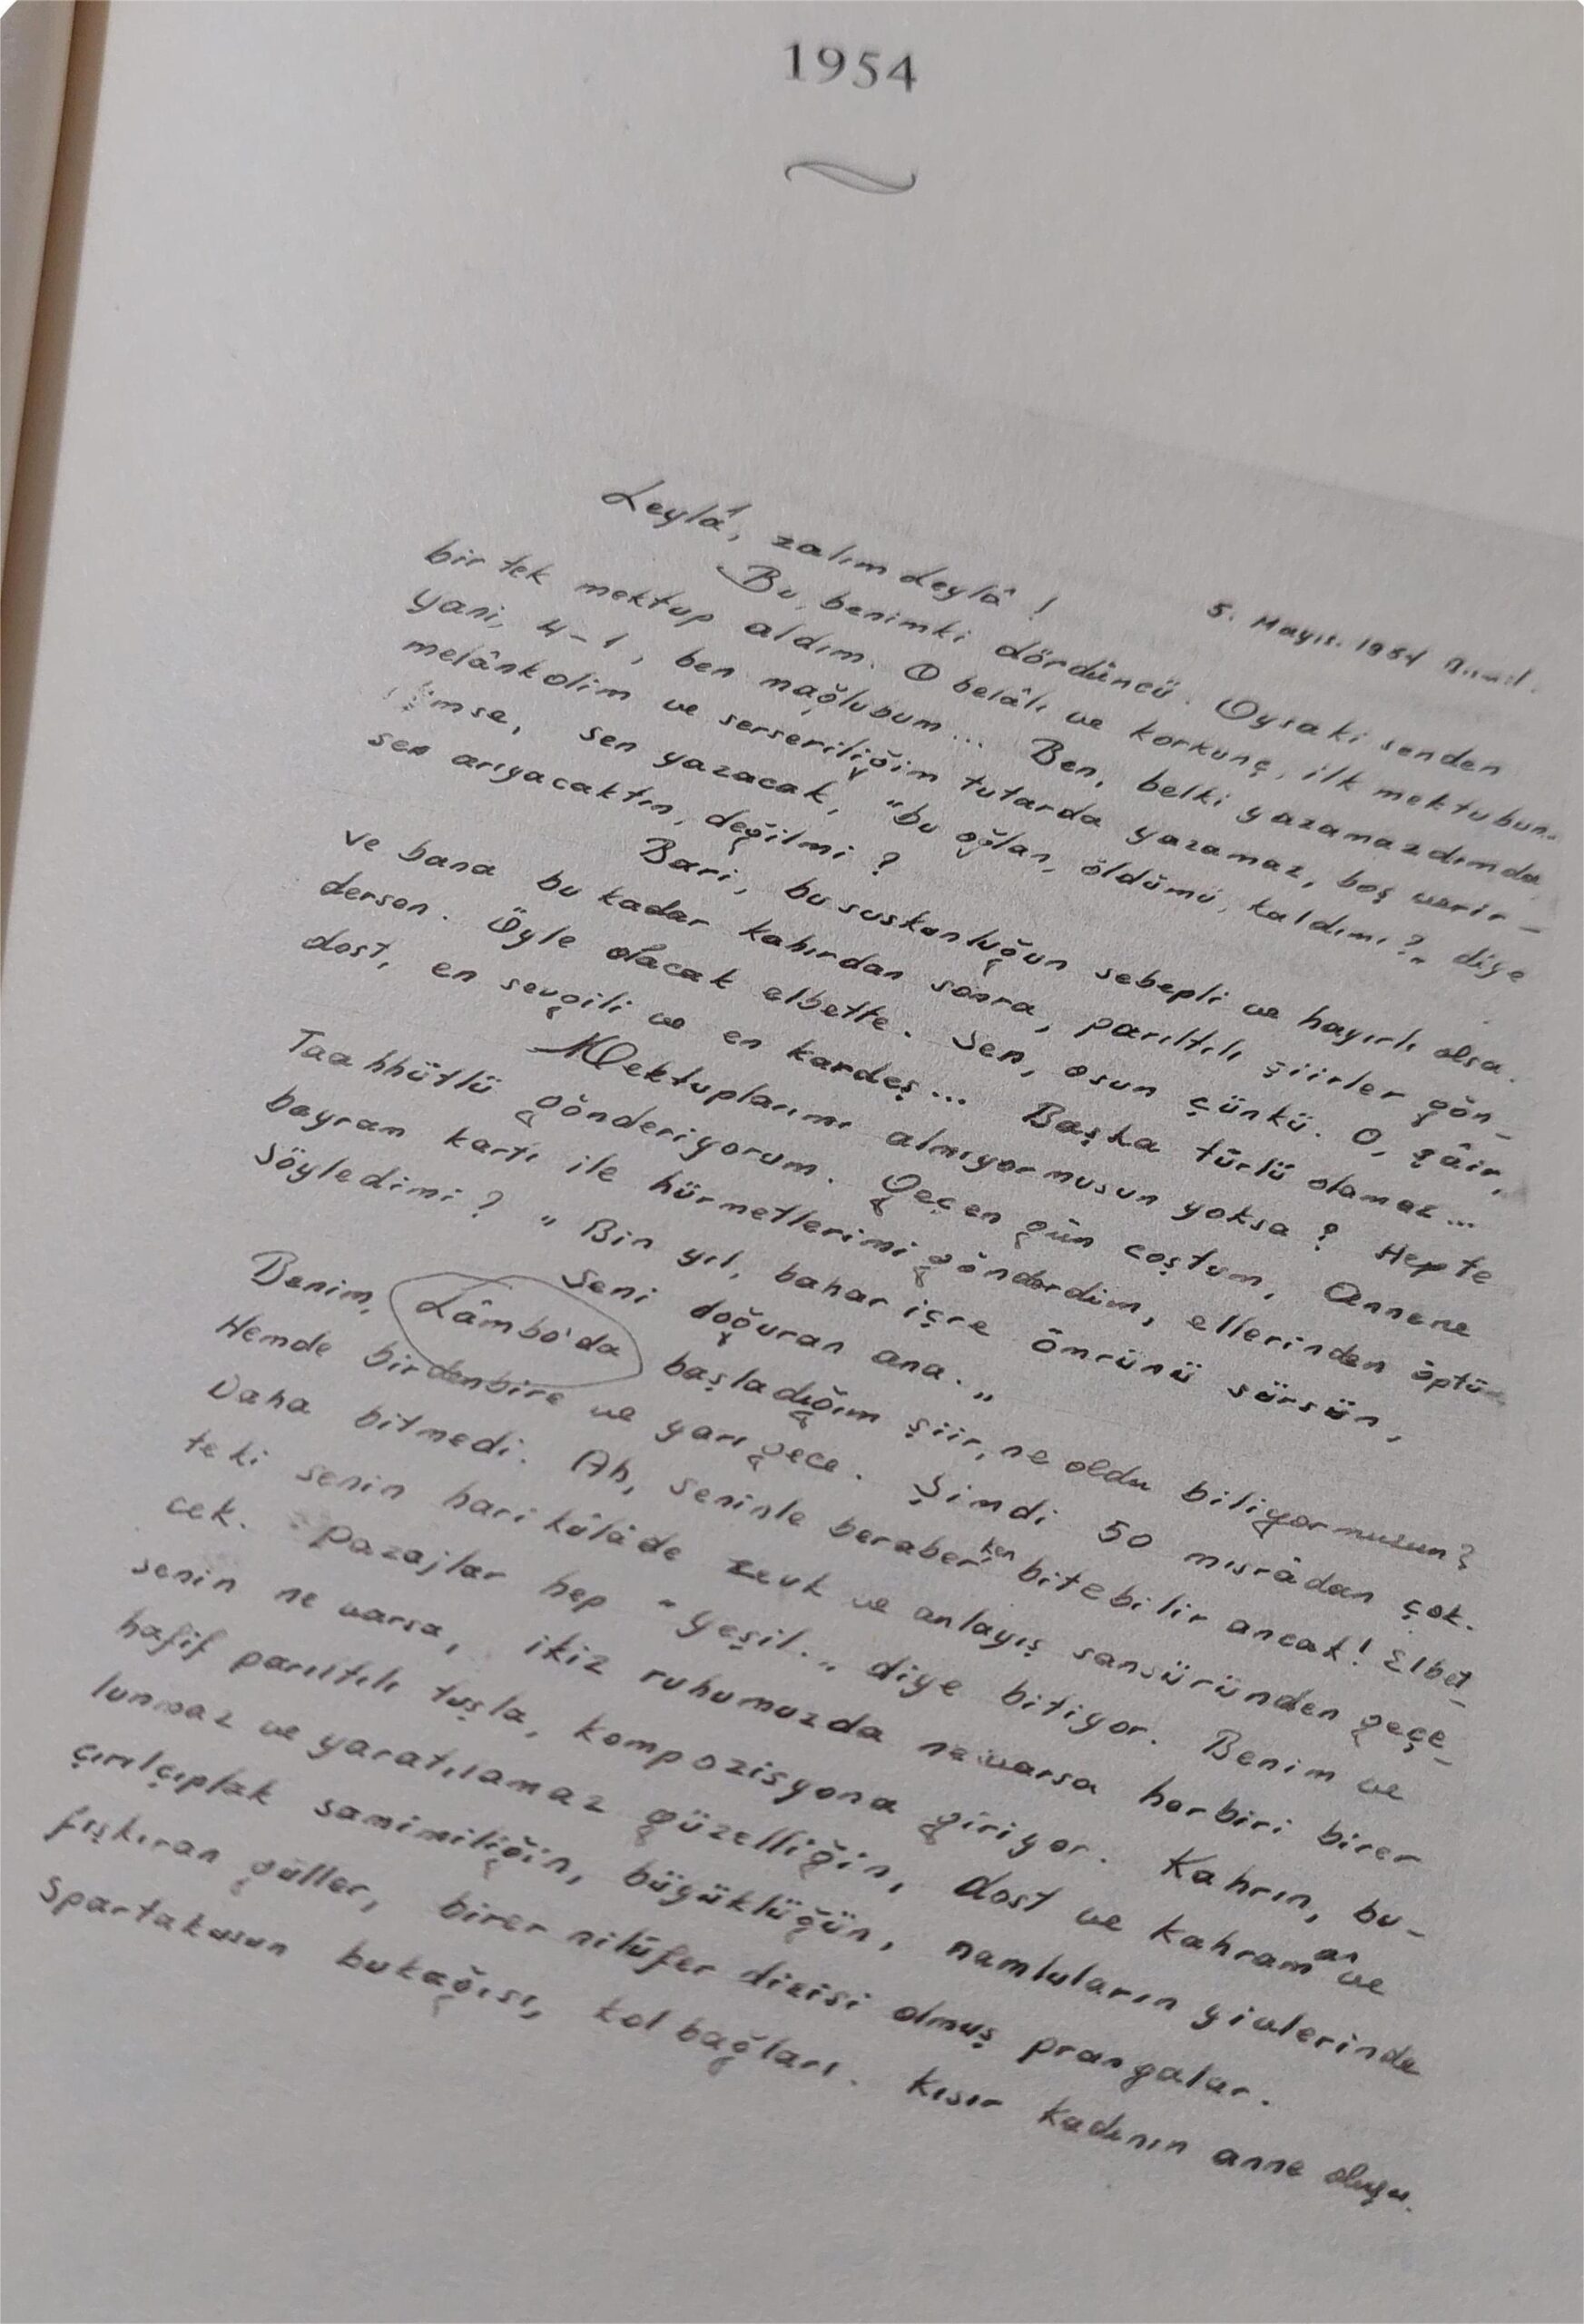 1954
5. Mayıs. 1954
Leylâ, zalım Leylâ !
Bu, benimki dördüncü. Oysaki senden
bir tek mektup aldım. O belâlı ve korkunç, ilk mektubun.
Yani, 4-1, ben mağlubum... Ben, belki yazamazdımda,
melânkolim ve serseriliğim tutarda yazamaz, boş verir-
dimse, sen yazacak, "bu oğlan, öldümü, kaldımı?" diye
sen arıyacaktın, değilmi ?
Bari, bu suskunluğun sebepli ve hayırlı olsa.
Ve bana bu kadar kahırdan sonra, parıltılı şiirler gön-
dersen. Öyle olacak elbette. Sen, osun çünkü. O, şâir,
dost, en sevgili ve en kardeş... Başka türlü olamaz...
Mektuplarımı almıyormusun yoksa ? Hepte
Taahhütlü gönderiyorum. Geçen gün coştum, Annene
bayram kartı ile hürmetlerimi gönderdim, ellerinden öptüm
söyledimi ? "Bin yıl, bahar içre ömrünü sürsün,
Seni doğuran ana."
Benim, Lâmbo'da başladığım şiir, ne oldu biliyormusun?
Hemde birdenbire ve yarı gece. Şimdi 50 mısrâdan çok.
Daha bitmedi. Ah, seninle beraberken bitebilir ancak! Elbet-
teki senin harikûlâde zevk ve anlayış sansüründen geçe-
cek. Pazajlar hep "Yeşil.." diye bitiyor. Benim ve
senin ne varsa, ikiz ruhumuzda ne varsa herbiri birer
hafif parıltılı tuşla, kompozisyona giriyor. Kahrın, bu-
lunmaz ve yaratılamaz güzelliğin, dost ve kahraman ve
çırılçıplak samimiliğin, büyüklüğün, namluların yivlerinde
fışkıran güller, birer nilüfer dizisi olmuş prangalar.
Spartakusun bukağısı, kol bağları. Kısır kadının anne oluşu.